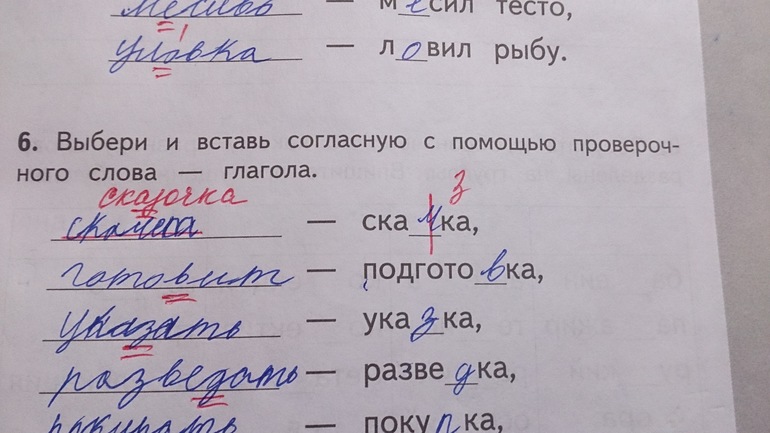 месить — месил тесто,
уловка — ловил рыбу.
6. Выбери и вставь согласную с помощью провероч-
ного слова — глагола.
сказочка з
скамега — скамка,
готовит — подготовка,
указать — указка,
разведать — разведка,
покупать — покупка,